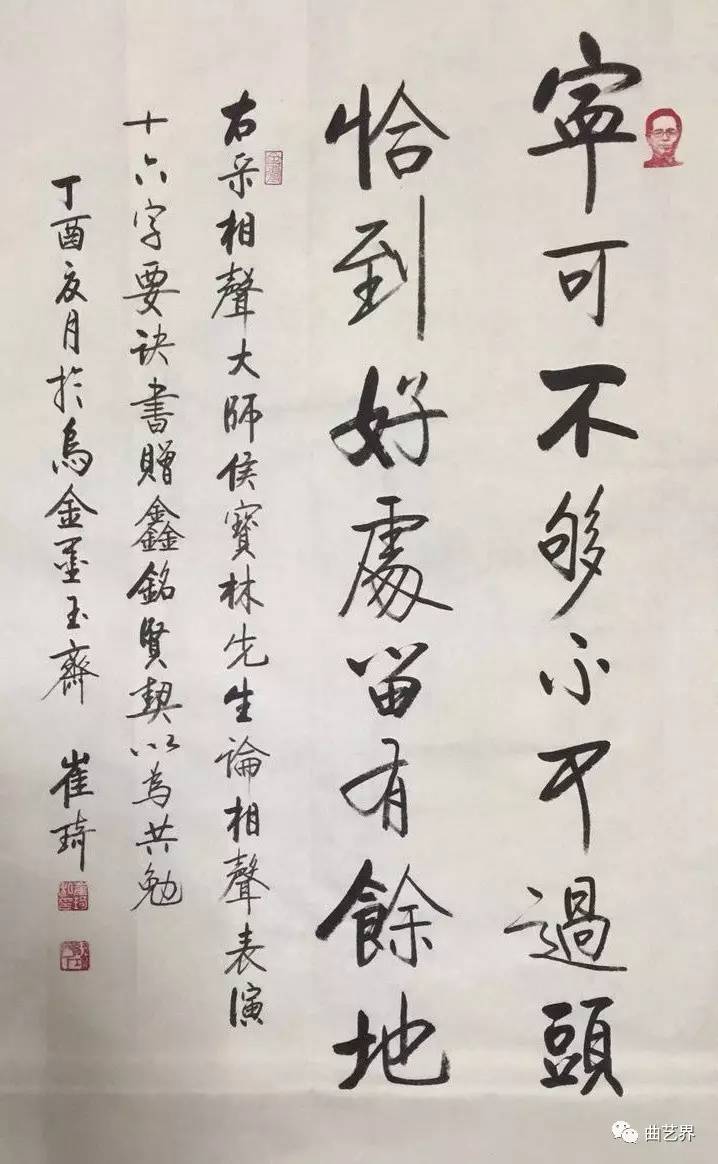 寧可不够不可過頭
恰到好處留有餘地
右录相聲大師侯寶林先生論相聲表演
十六字要訣書贈鑫銘賢契以為共勉
丁酉亥月於烏金墨玉齋 崔琦
曲艺界